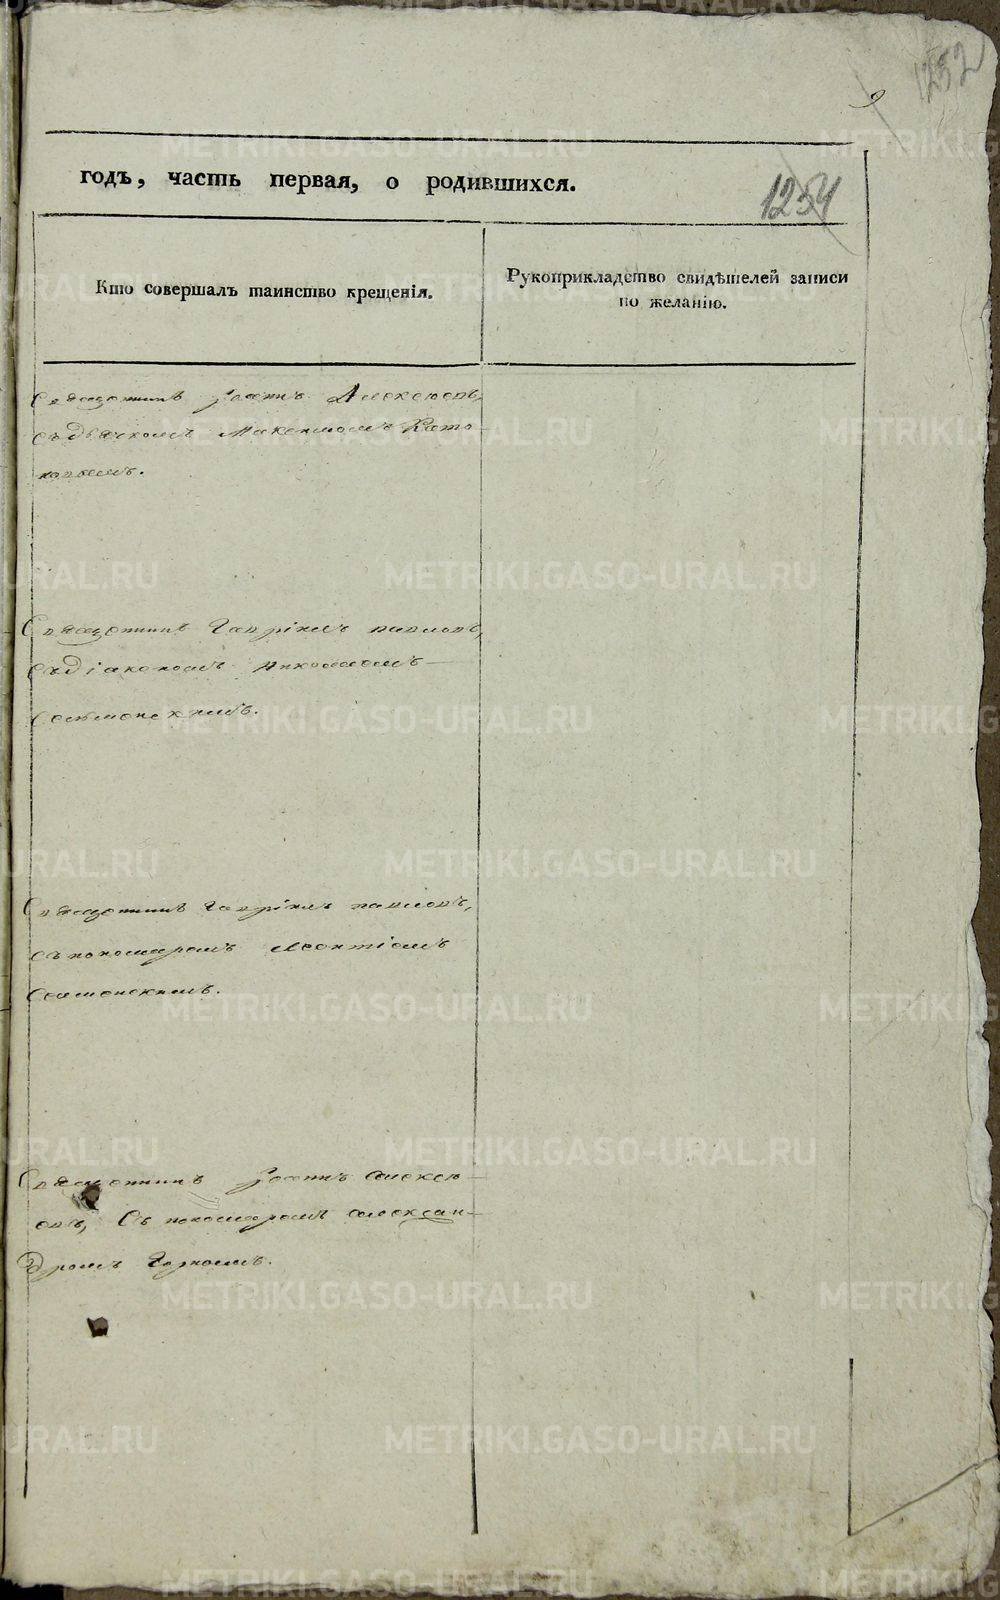 1252
9
годъ, часть первая, о родившихся.
1254
Кто совершалъ таинство крещенія.
Рукоприкладство свидѣтелей записи
по желанію.
Священникъ Іоаннъ Алексѣевъ,
съ дьячкомъ Максимомъ
Священникъ Гавріилъ Павловъ,
съ діакономъ Николаемъ
Селменскимъ.
Священникъ Гавріилъ Павловъ,
съ пономаремъ Леонтіемъ
Священникъ Іоаннъ Алексѣ-
евъ, съ пономаремъ Алексан-
дромъ
METRIKI.GASO-URAL.RU